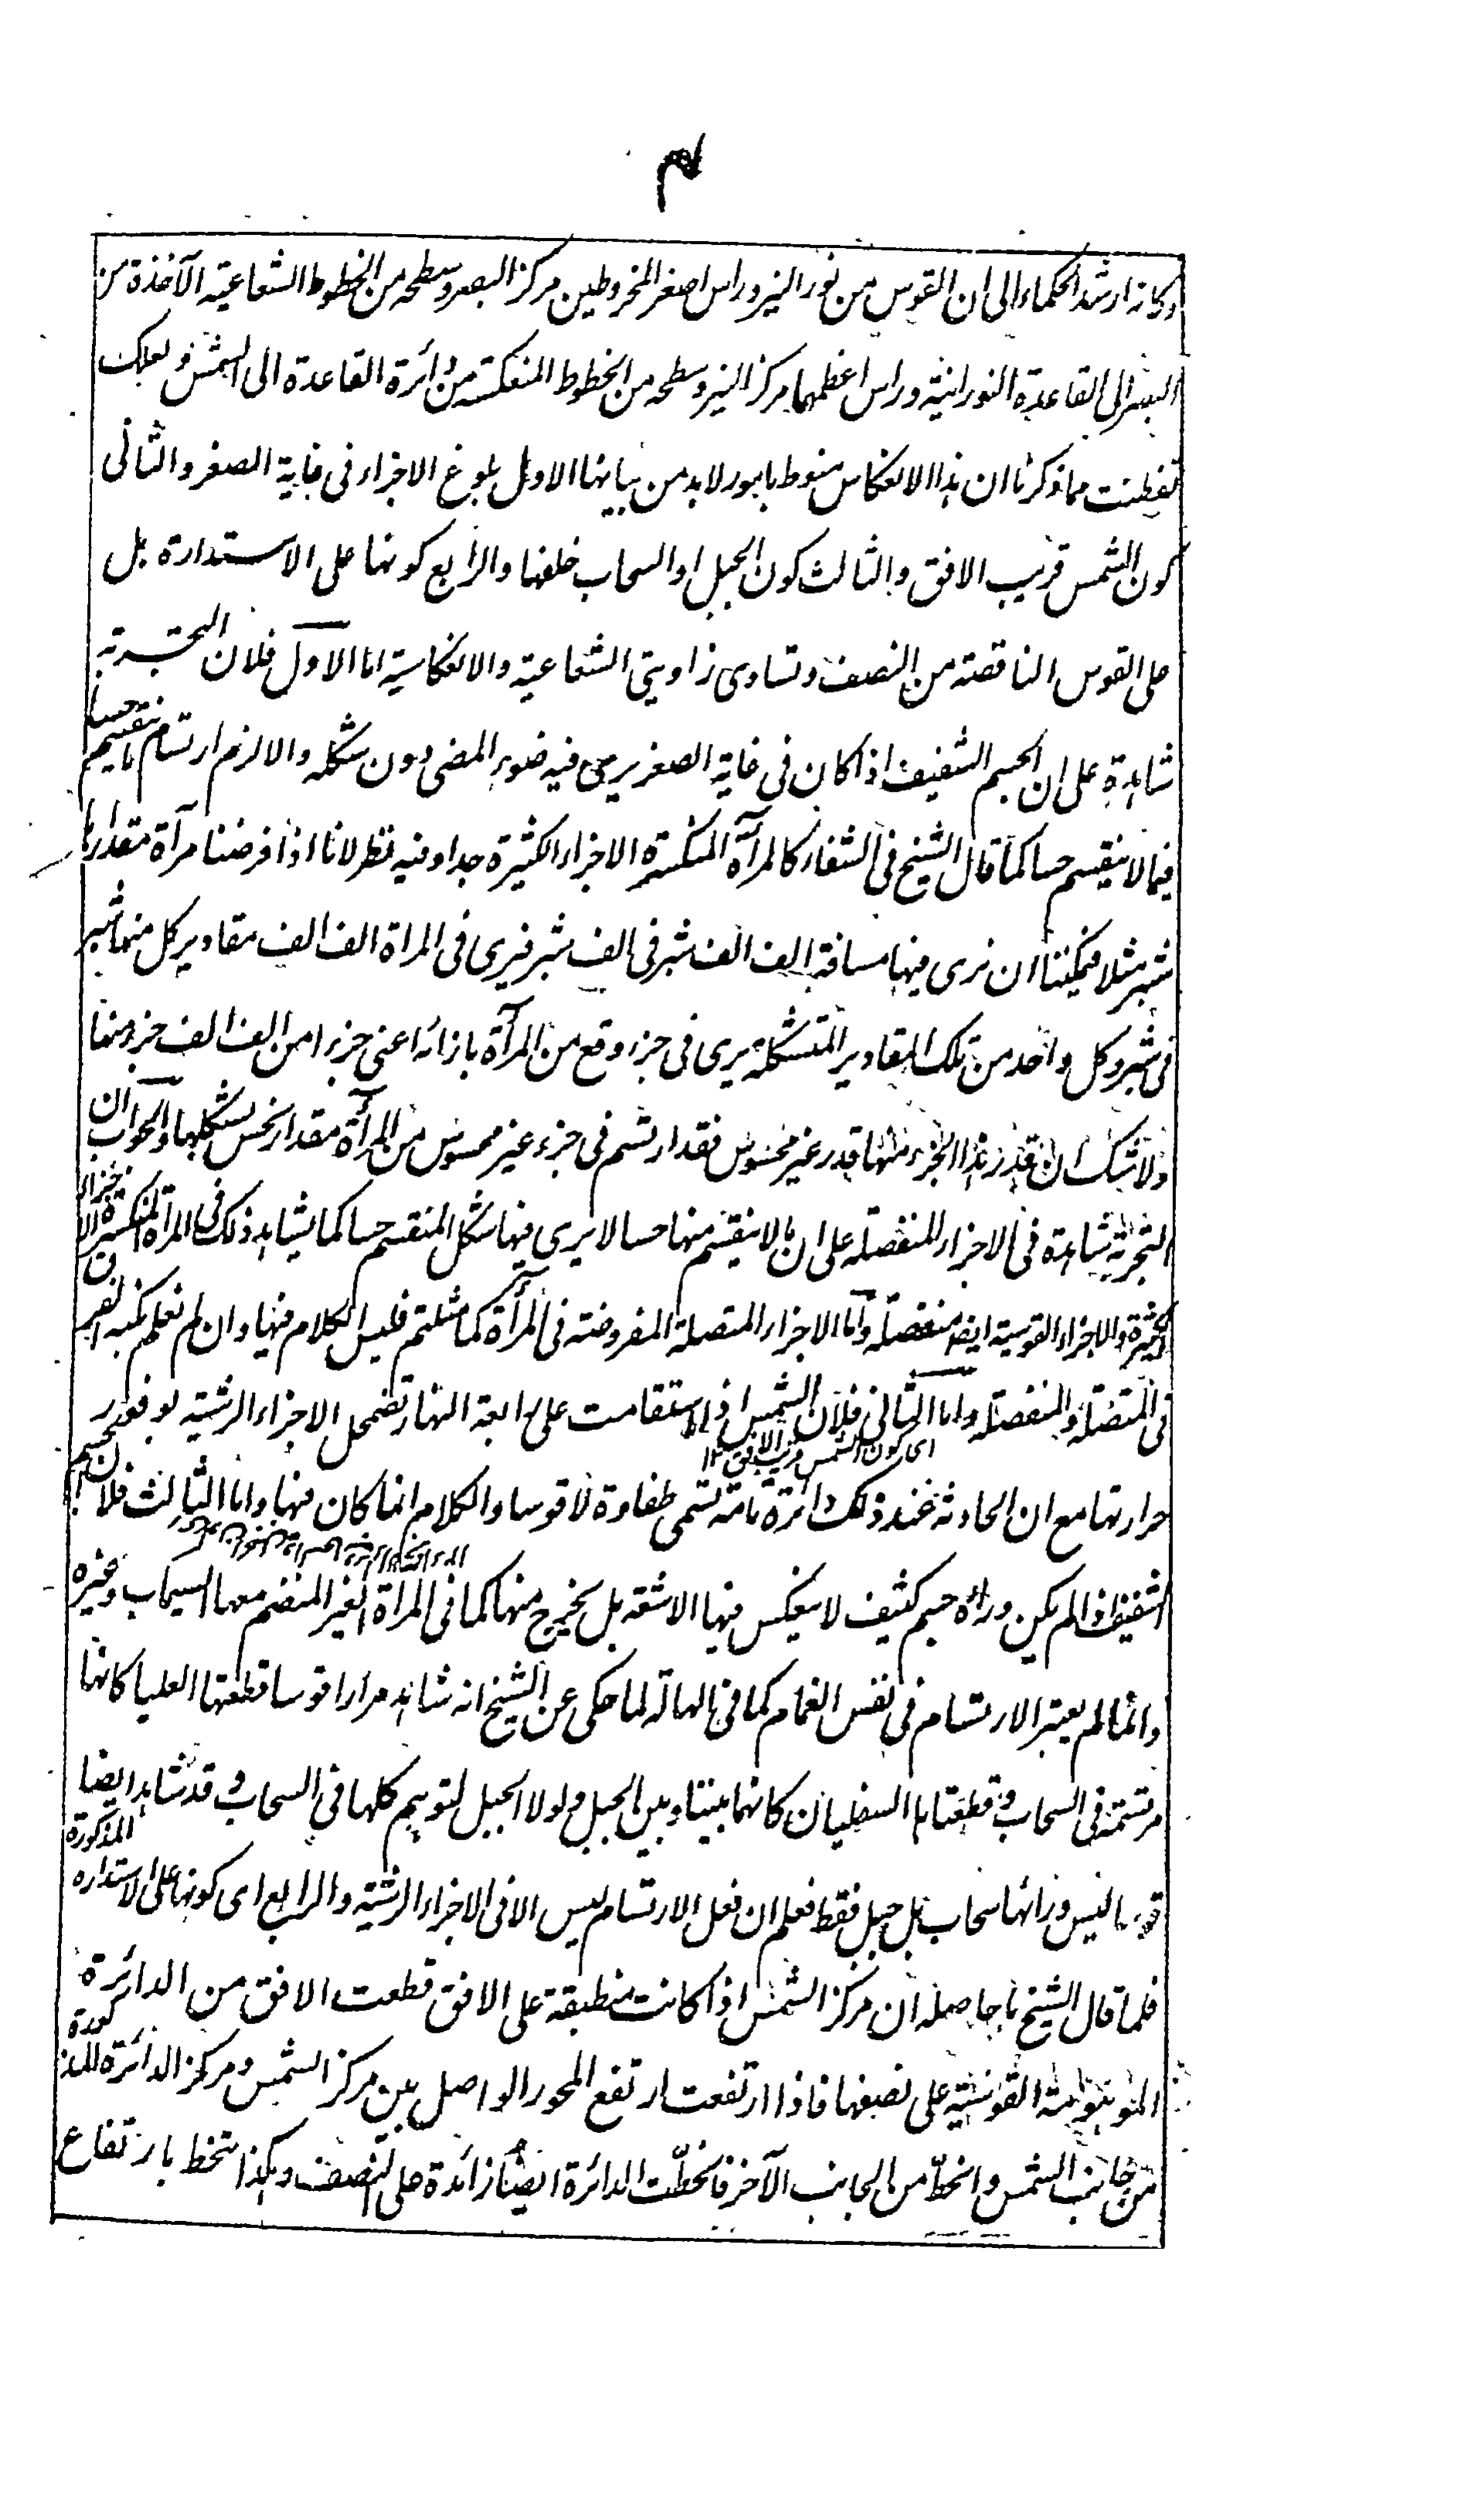 ۴
وكانه ارشد الحكماء الى ان القوس من نور النير وراس اصغر المخروطين مركز البصر وسطحه من الخطوط الشعاعية الآخذة من
البصر الى القاعدة النورانية وراس اعظمهما مركز النير وسطحه من الخطوط المنعكسة من دائرة القاعدة الى الشمس ولعلك
تفطنت مما ذكرنا ان هذا الانعكاس منوط بامور لابد من بيانها الاول بلوغ الاجزاء فى غاية الصغر والثانى
كون الشمس قريب الافق والثالث كون الجبل او السحاب خلفها والرابع كونها على الاستدارة بل
على القوس الناقصة من النصف وتساوى زاويتى الشعاعية والانعكاسية اما الاول فلان التجربة
شاهدة على ان الجسم الشفيف اذا كان فى غاية الصغر يرى فيه ضوء المضى دون شكله والا لزم ارتسام ما ينقسم حسا
فيما لا ينقسم حسا كما قال الشيخ فى الشفاء كالمرآة المنكسرة الاجزاء الكثيرة جدا وفيه نظر لانا اذا فرضنا مرآة مقدارها
شبر مثلا فيمكننا ان نرى فيها مسافة الف الف شبر فى الف شبر فيرى فى المراة الف الف مقادير كل منها شبر
فى شبر وكل واحد من تلك المقادير المتشكلة يرى فى جزء وقع من المرآة بازائه اعنى جزءا من الف الف جزء منها
ولا شك ان قدر هذا الجزء منها قدر غير محسوس فقد ارتسم فى جزء غير محسوس من المرآة مقدار يحس بشكلها والجواب ان
التجربة شاهدة فى الاجزاء المنفصلة على ان ما لا ينقسم منها حسا لا يرى فيها شكل المنقسم حسا كما يشاهد ذلك فى المرآة المنكسرة الاجزاء
الكثيرة والاجزاء القوسية ايضا منفصلة واما الاجزاء المتصلة المفروضة فى المرآة كما مثلتم فليس الكلام فيها وان لم نعلم بكنه الفرق
فى المتصلة والمنفصلة واما الثانى فلان الشمس اذا استقامت على رابعة النهار تضمحل الاجزاء الرشية لوفور
اى كون الشمس قريب الافق ١٢
حرارتها مع ان الحادثة عند ذلك دائرة تامة تسمى طفاوة لا قوسا والكلام انما كان فيها واما الثالث فلان الجسم
الشفيف اذا لم يكن وراءه جسم كثيف لا ينعكس فيها الاشعة بل يخرج منها كما فى المرآة الغير المنضم معها السيماب وغيره
وانما لم يعتبر الارتسام فى نفس الغمام كما فى الهالة لما حكى عن الشيخ انه شاهد مرارا قوسا قطعتها العليا كانها
مرتسمة فى السحاب وقطعتاها السفليان كانهما بيننا وبين الجبل ولولا الجبل لتوهم كلها فى السحاب وقد شاهد ايضا
قوسا ليس ورائها سحاب بل جبل فقط فعلم ان فعل الارتسام ليس الا فى الاجزاء الرشية والرابع اى كونها على الاستدارة المذكورة
فلما قال الشيخ ما حاصله ان مركز الشمس اذا كانت منطبقة على الافق قطعت الافق من الدائرة
الموهومة القوسية على نصفها فاذا ارتفعت ارتفع المحور الواصل بين مركز الشمس ومركز الدائرة المذكورة
من جانب الشمس وانحط من الجانب الآخر فانحطت الدائرة ايضا زائدة على النصف وهكذا تنحط بارتفاع